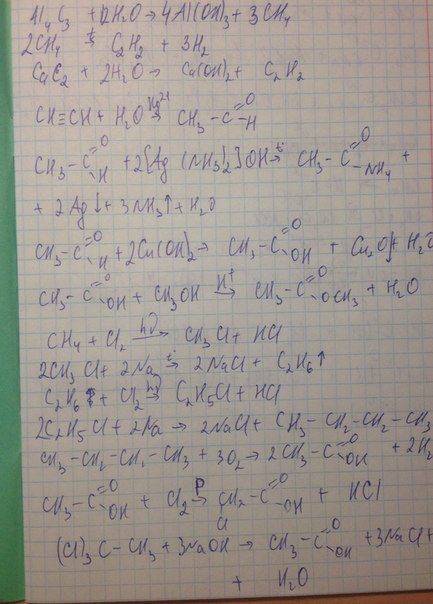 Al₄C₃ + 12H₂O → 4Al(OH)₃ + 3CH₄
2CH₄ →(t) C₂H₂ + 3H₂
CaC₂ + 2H₂O → Ca(OH)₂ + C₂H₂
CH≡CH + H₂O →(Hg²⁺) CH₃-C(=O)-H
CH₃-C(=O)-H + 2[Ag(NH₃)₂]OH →(t) CH₃-C(=O)-NH₄ +
+ 2Ag↓ + 3NH₃↑ + H₂O
CH₃-C(=O)-H + 2Cu(OH)₂ → CH₃-C(=O)-OH + Cu₂O↓ + H₂O
CH₃-C(=O)-OH + CH₃OH →(H⁺) CH₃-C(=O)-OCH₃ + H₂O
CH₄ + Cl₂ →(hν) CH₃Cl + HCl
2CH₃Cl + 2Na →(t) 2NaCl + C₂H₆↑
C₂H₆↑ + Cl₂ →(hν) C₂H₅Cl + HCl
2C₂H₅Cl + 2Na → 2NaCl + CH₃-CH₂-CH₂-CH₃
CH₃-CH₂-CH₂-CH₃ + 3O₂ → 2CH₃-C(=O)-OH + 2H₂
CH₃-C(=O)-OH + Cl₂ →(P) CH₂(Cl)-C(=O)-OH + HCl
(Cl)₃C-CH₃ + 3NaOH → CH₃-C(=O)-OH + 3NaCl +
+ H₂O